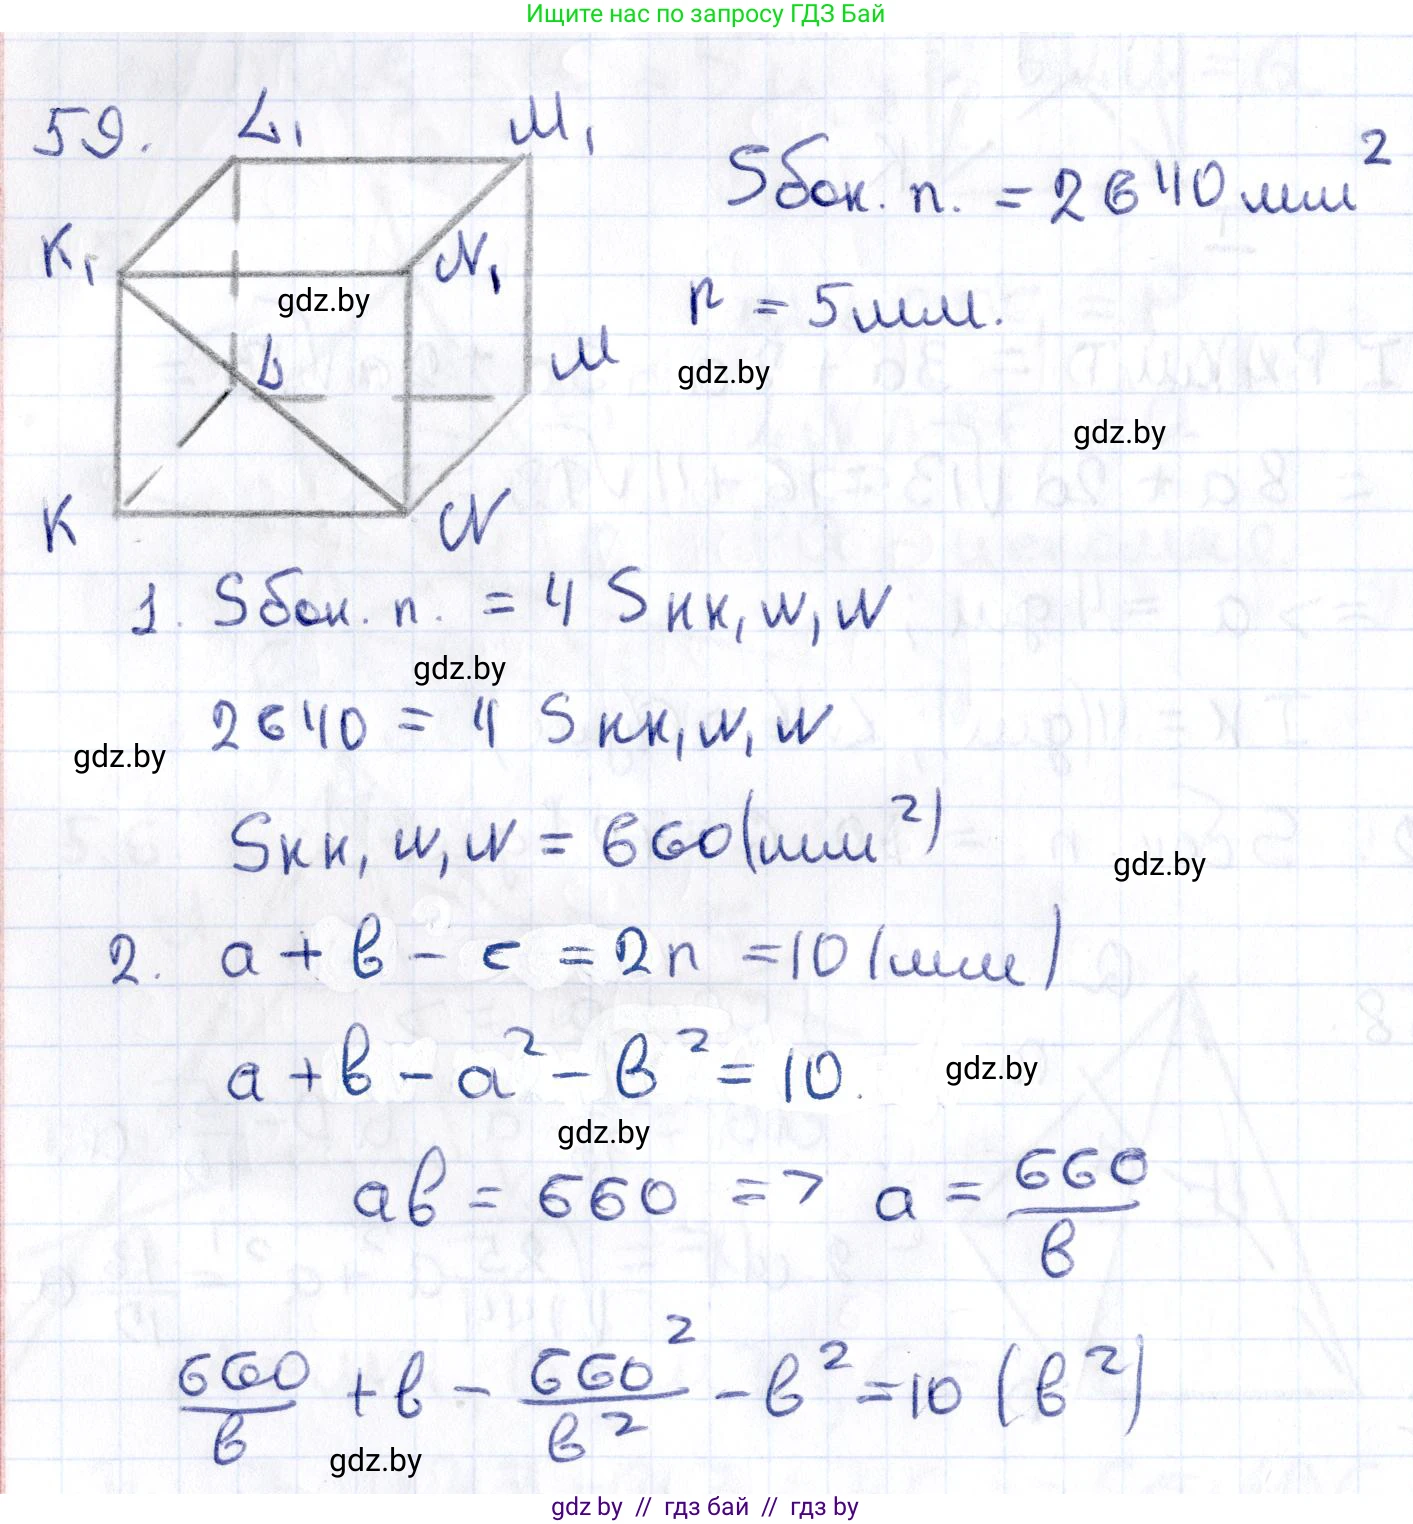 Ищите нас по запросу ГДЗ Бай
59.
L₁ M₁
K₁ N₁
gdz.by
L M
K N
Sбок. п. = 2640 мм²
r = 5 мм.
gdz.by
gdz.by
1. Sбок. п. = 4 S KK₁N₁N
gdz.by
2640 = 4 S KK₁N₁N
gdz.by
S KK₁N₁N = 660 (мм²)
gdz.by
2. a + b - c = 2r = 10 (мм)
a + b - a² - b² = 10.
gdz.by
gdz.by
ab = 660 => a = 660/b
660/b + b - 660²/b² - b² = 10 (b²)
gdz.by
gdz.by // гдз бай // гдз by